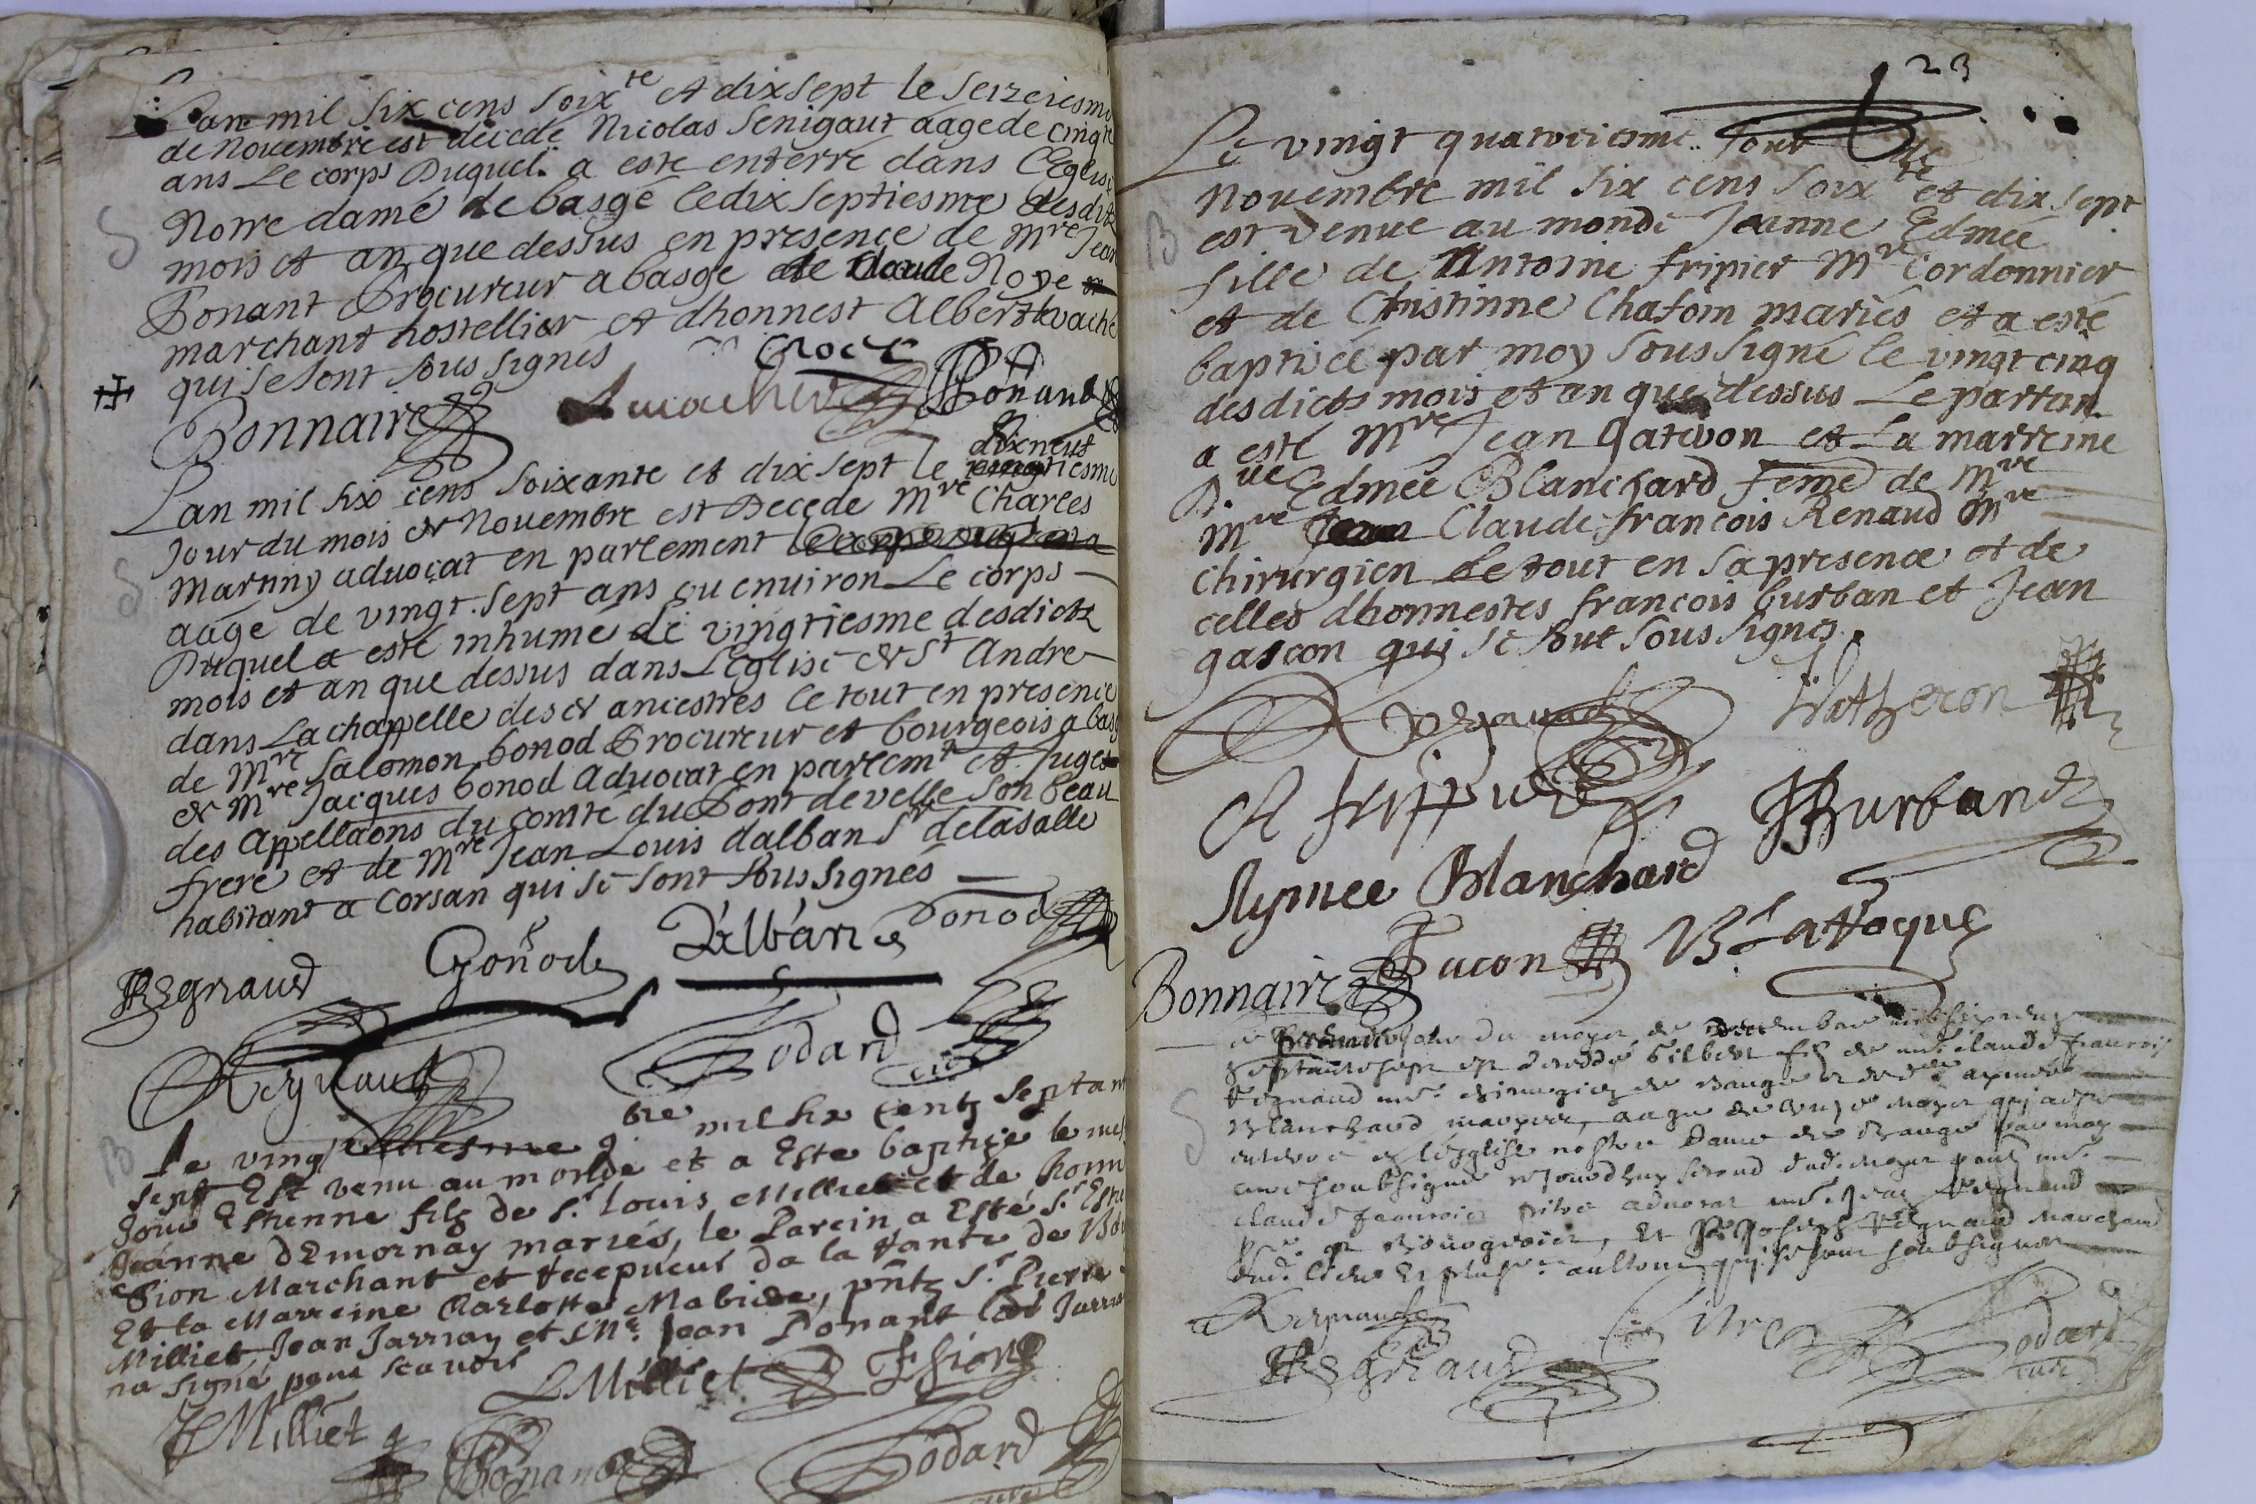 Lan mil six cens soixte et dix sept le seizeiesme
de Novembre est decede Nicolas Senigaut aage de cinqte
ans Le corps Duquel a este enterré dans l'Eglise
Notre dame de basgé le dix septiesme desdits
mois et an que dessus en presence de Mre Jean
Ponant Procureur a basge de Claude Noye
marchant hostellier et dhonnest Albert
qui se sont sous signés
Bonnaire Ponand
dix neuf
Lan mil six cens soixante et dix sept le vingtiesme
Jour du mois de Novembre est Decede Mre Charles
Martiny advocat en parlement
aagé de vingt sept ans ou environ Le corps
Duquel a esté inhumé le vingtiesme desdicts
mois et an que dessus dans L'Eglise de St Andre
dans La chappelle de ses ancestres le tout en presence
de Mre Salomon bonod Procureur et bourgeois a basge
de Mre Jacques bonod Advocat en parlemt et Juge
des Appellaons du comté du Pont de velle son beau
frere et de Mre Jean Louis dalban Sr de la salle
habitant a Corsan qui se sont sous signés
Regnaud Gonod Dalban Bonod
Reynaud Godard
Le vingtiesme 9bre mil six centz septante
sept Est venu au monde et a Este baptizé le mesme
Jour Estienne filz de Sr Louis Milliet et de honn
Jeanne d'Emornay mariés, le Parein a Esté Sr Esti
Sion Marchant et recepveur de la
Et la Marreine Charlotte Mabiez, pntz Sr Pierre
Milliet, Jean Jarnay et Me Jean Ponant
na signé pour scavoir
L Milliet E Sion
Milliet Ponand Godard
23
Le vingt quatreiesme Jour
Novembre mil six cens soixte et dix sept
est venue au monde Jeanne Edmée
fille de Antoine fripier Mre Cordonnier
et de Christinne Chafom mariés et a esté
baptisée par moy sous signé le vingt cinq
desdicts mois et an que dessus Le partain
a esté Mre Jean Gatevon et La marreine
D.ue Edmée Blanchard feme de Mre
Mre Claude francois Renaud Mre
Chirurgien le tout en sa presence et de
celles dhonnestes francois burban et Jean
gascon qui se sont sous signés
Regnaud Patheron
A frippier
Burband
Aymee Blanchard
Bonnaire Facon B Laroque
Le premier jour du moys de decembre mil six cens
septante sept est decedé Gilbert filz de me claude francois
Regnaud me chirurgien de Baugé et de dlle aymée
Blanchard mariés, aagé de onze moys qui a esté
enterré en l'esglise nostre Dame de Baugé par moy
curé soubsigné ce jourdhuy second dud. moys pntz me
claude francois advocat me Jean Regnaud
et bourgeois, et Sr Joseph Regnaud marchand
qui se sont soubsignés
Regnaud
Regnaud Godard
curé